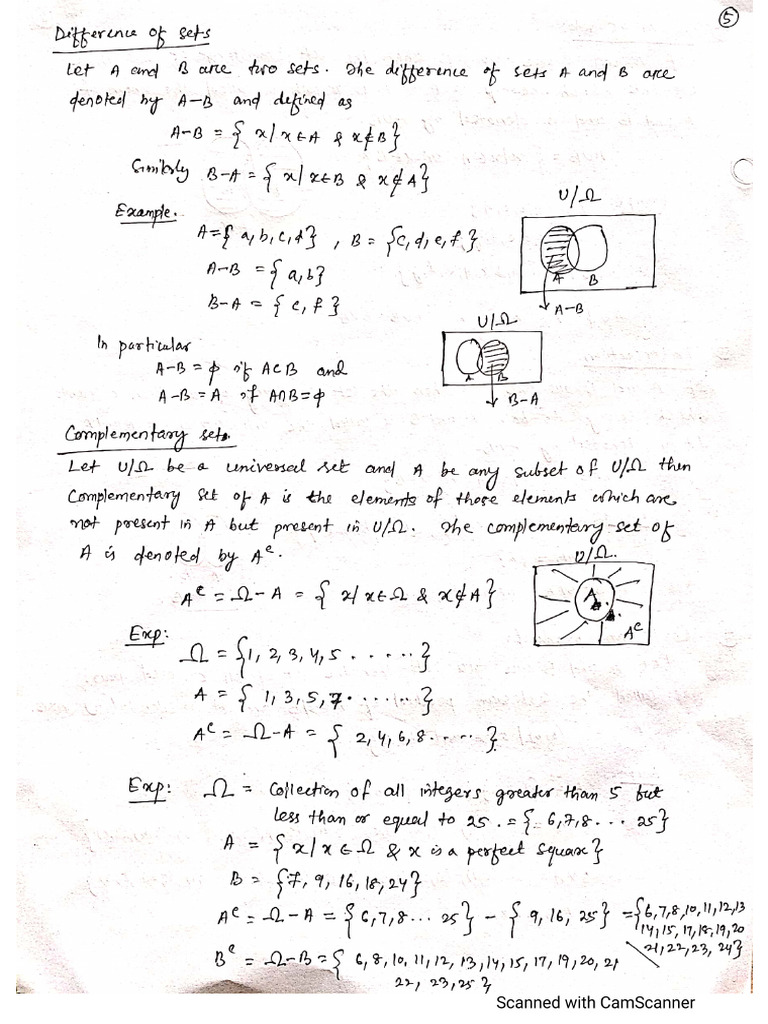 5
Difference of sets
Let A and B are two sets. The difference of sets A and B are
denoted by A-B and defined as
A-B = { x/ x∈A & x∉B}
Similarly B-A = { x/ x∈B & x∉A}
Example.
A={ a,b,c,d} , B = {c,d,e,f}
A-B = { a,b}
B-A = { e,f}
U/Ω
A B
A-B
In particular
A-B = ϕ if A⊂B and
A-B = A if A∩B=ϕ
U/Ω
A B
B-A
Complementary sets.
Let U/Ω be a universal set and A be any subset of U/Ω then
Complementary set of A is the elements of those elements which are
not present in A but present in U/Ω. The complementary set of
A is denoted by Aᶜ.
U/Ω.
A
Aᶜ
Aᶜ = Ω-A = { x/ x∈Ω & x∉A}
Exp:
Ω = {1, 2, 3, 4, 5 ......}
A = { 1, 3, 5, 7.......}
Aᶜ = Ω-A = { 2, 4, 6, 8.....}
Exp: Ω = Collection of all integers greater than 5 but
less than or equal to 25. = { 6,7,8... 25}
A = { x/ x∈Ω & x is a perfect square}
B = {7, 9, 16, 18, 24}
Aᶜ = Ω-A = {6,7,8... 25} - { 9, 16, 25} = {6,7,8,10,11,12,13
14,15,17,18,19,20
21,22,23,24}
Bᶜ = Ω-B = { 6, 8, 10, 11, 12, 13, 14, 15, 17, 19, 20, 21
22, 23, 25}
Scanned with CamScanner